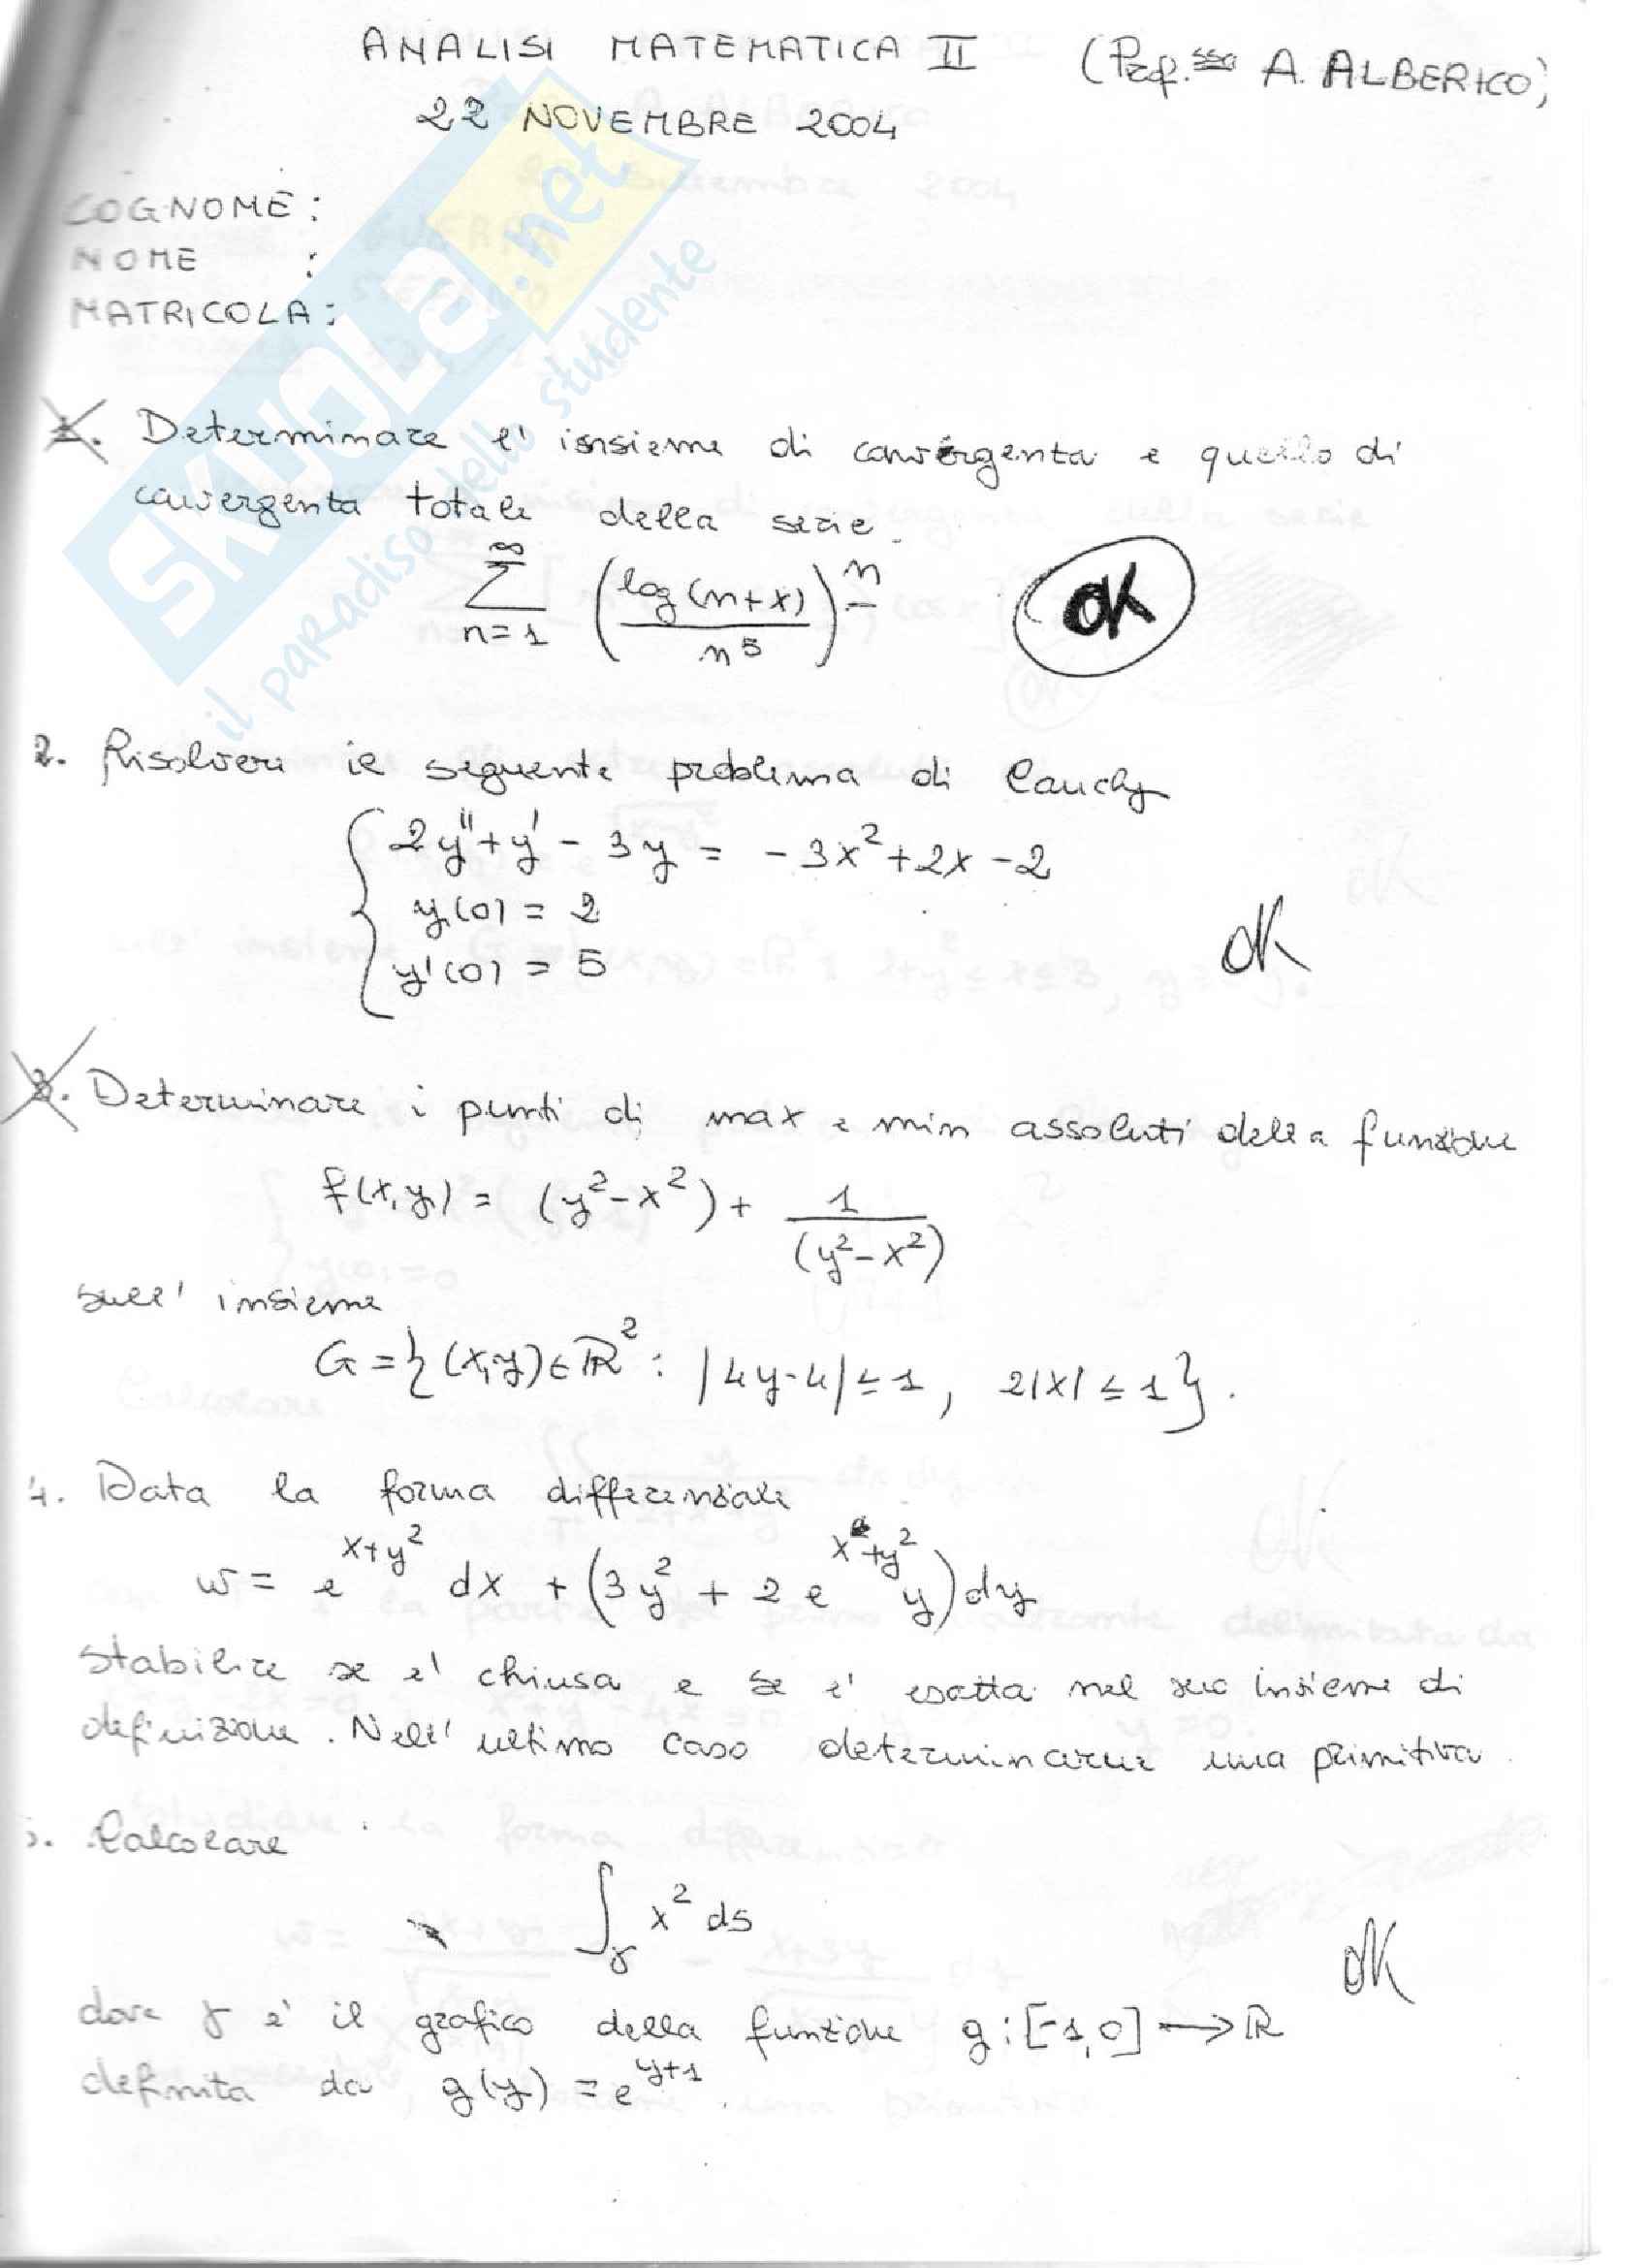 ANALISI MATEMATICA II (Prof.ssa A. ALBERICO)
22 NOVEMBRE 2004
COGNOME:
NOME :
MATRICOLA:
SKUOLA.net
il paradiso dello studente
1. Determinare l'insieme di convergenza e quello di
convergenza totale della serie
∞
∑ (log(n+x)/n^5)^n
n=1
OK
2. Risolvere il seguente problema di Cauchy
{ 2y''+y' - 3y = -3x²+2x-2
y(0) = 2
y'(0) = 5
OK
3. Determinare i punti di max e min assoluti della funzione
f(x,y) = (y²-x²) + 1/(y²-x²)
sull'insieme
G = {(x,y)∈ℝ² : |4y-4| ≤ 1, 2|x| ≤ 1}.
4. Data la forma differenziale
w = e^(x+y²) dx + (3y² + 2e^(x+y²) y) dy
stabilire se e' chiusa e se e' esatta nel suo insieme di
definizione. Nell'ultimo caso determinarne una primitiva.
5. Calcolare
∫_γ x² ds
OK
dove γ e' il grafico della funzione g:[-1,0] → ℝ
definita da g(y) = e^(y+1).